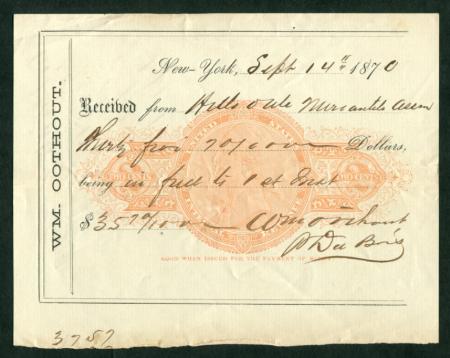 WM. OOTHOUT.
New-York, Sept 14" 1870
Received from Hillsdale Mercantile Assn
Thirty five 70/100 Dollars,
being in full to 1st Inst
$35 70/100 Wm Oothout
P DuBois
GOOD WHEN ISSUED FOR THE PAYMENT OF
3787